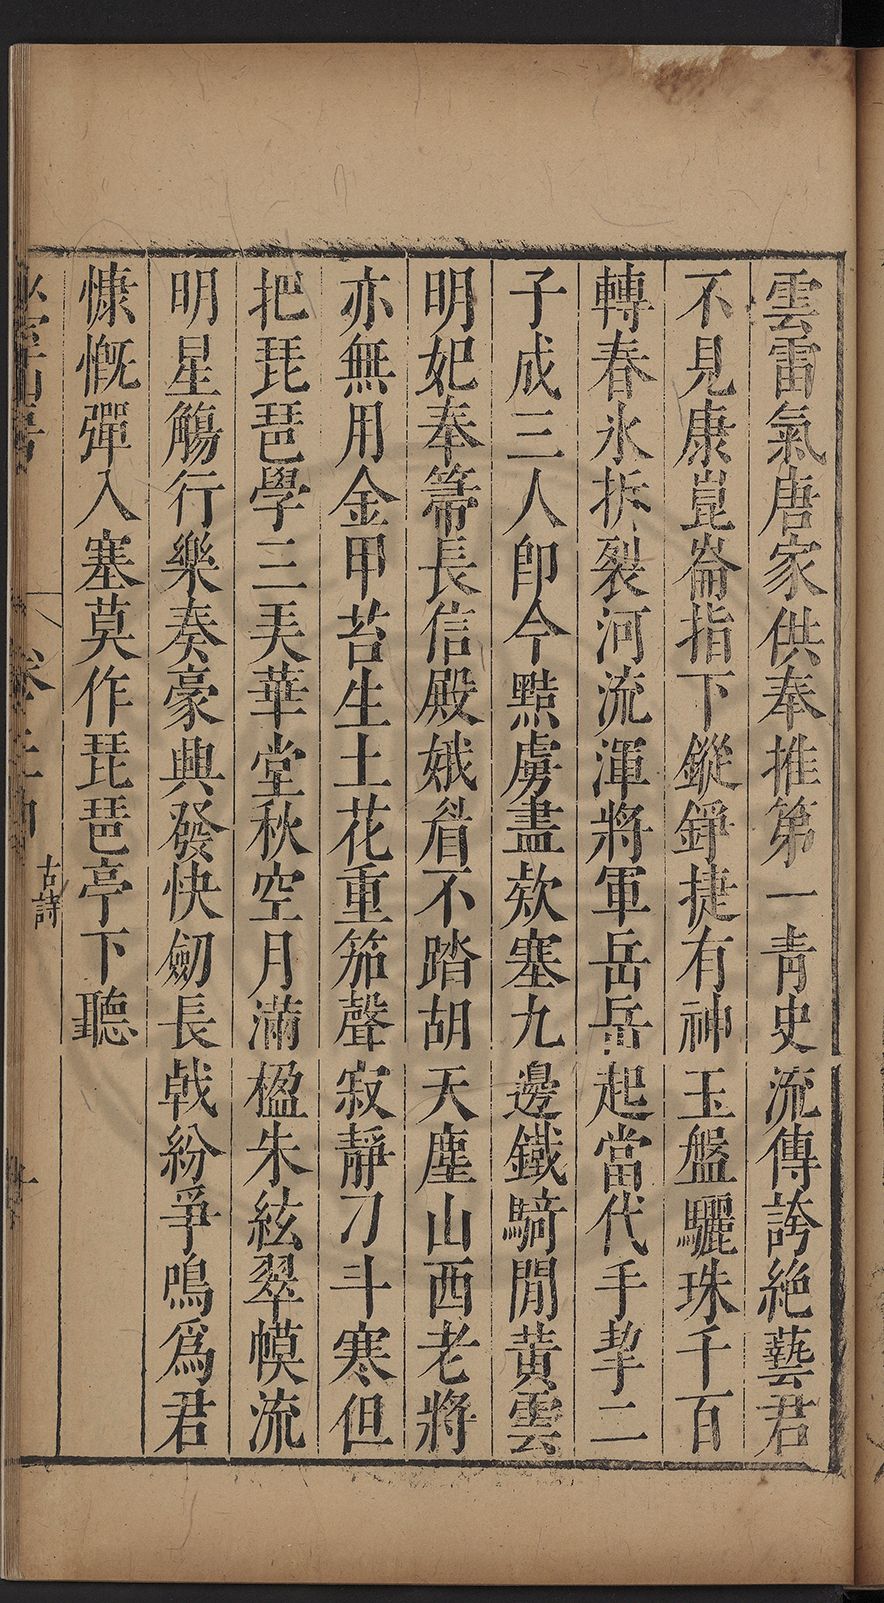 雲雷氣唐家供奉推第一青史流傳誇絕藝君
不見康崑崙指下鏦錚捷有神玉盤驪珠千百
轉春氷拆裂河流渾將軍岳岳起當代手挈二
子成三人卽今黠虜盡欵塞九邊鐵騎閒黃雲
明妃奉箒長信殿娥眉不踏胡天塵山西老將
亦無用金甲苔生土花重笳聲寂靜刀斗寒但
把琵琶學三美華堂秋空月滿楹朱絃翠幙流
明星觴行樂奏豪興發快劒長戟紛爭鳴爲君
慷慨彈入塞莫作琵琶亭下聽
古詩